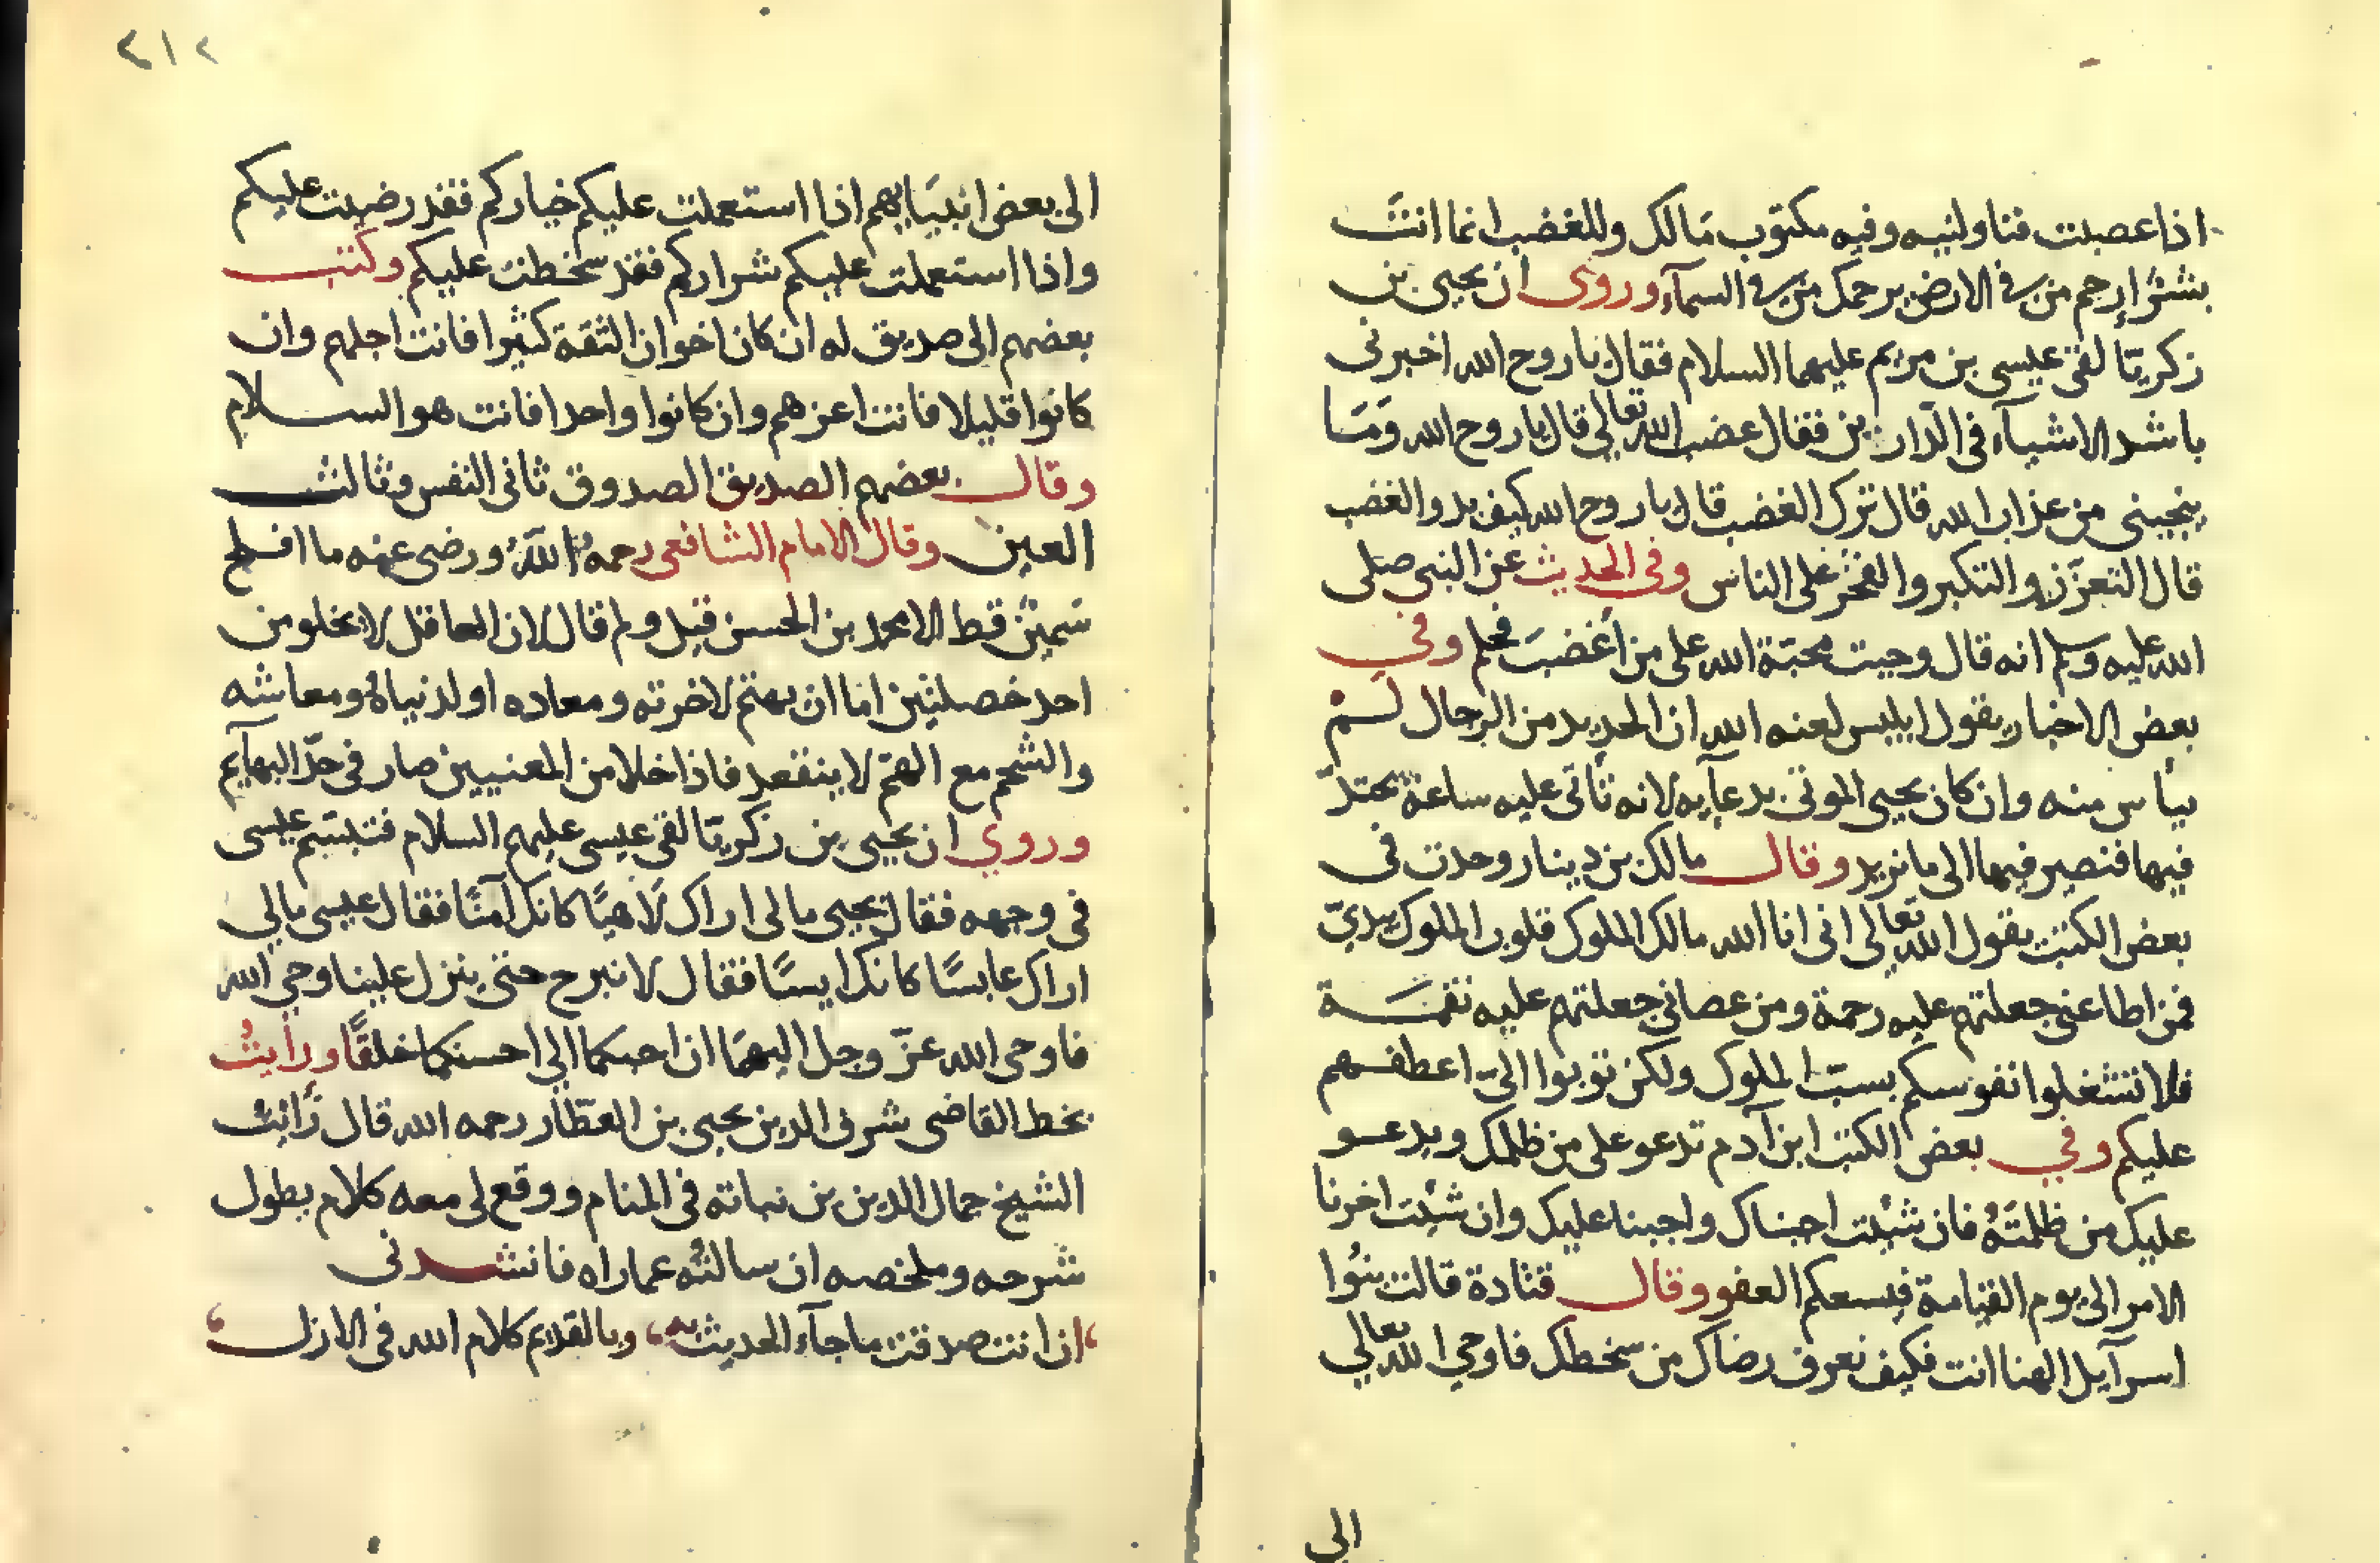 اذا عصبت فناولنيه وفيه مكتوب مالك وللغضب انما انت
بشر ارحم من في الارض يرحمك من في السمآء وروى ان يحيى بن
زكريّا لقى عيسى بن مريم عليهما السلام فقال يا روح الله اخبرنى
باشد الاشيآء فى الدّارين فقال غضب الله تعالى قال يا روح الله ومَا
ينجينى من عذاب الله قال ترك الغضب قال يا روح الله كيف بدو الغضب
قال التعزّز والتكبر والفخر على الناس وفى الحديث عن النبى صلى
الله عليه وسلم انه قال وجبت محبّة الله على من أغضبَ فحلم وفي
بعض الاخبار يقول ابليس لعنه الله ان الحديد من الرجال لم
ييأس منه وان كان يحيى الموتى بدعآيه لانه تأتى عليه ساعة يحتدّ
فيها فنصير فيها الى ما نريد وقال مالك بن دينار وجدت فى
بعض الكتب يقول الله تعالى انى انا الله مالك الملوك قلوب الملوك بيديّ
فمن اطاعنى جعلتهم عليه رحمة ومن عصانى جعلتهم عليه نقمَة
فلا تشغلوا نفوسكم بسبّ الملوك ولكن توبوا الىّ اعطفهم
عليكم وفي بعض الكتب ابن آدم تدعو على من ظلمك ويدعو
عليك من ظلمتَهُ فان شئت اجبناك واجبنا عليك وان شئت اخرنا
الامر الى يوم القيامة فيسعكم العفو وقال قتادة قالت بنُوا
اسرآيل الهنا انت فكيف نعرف رضاك من سخطك فاوحي الله تعالي
الى
٢١٢
الى بعض انبيَايهم اذا استعملت عليكم خياركم فقد رضيت عليكم
واذا استعملت عليكم شراركم فقد سخطت عليكم وكتب
بعضهم الى صديق له ان كان اخوان الثقة كثيرا فانت اجلهم وان
كانوا قليلا فانت اعزهم وان كانوا واحدا فانت هو السلام
وقال بعضهم الصديق الصدوق ثانى النفس وثالث
العين وقال الامام الشافعى رحمهُ اللهُ ورضى عنه ما افلح
سَمينٌ قط الا محمد بن الحسن قيل ولم قال لان العاقل لا يخلو من
احد خصلتين اما ان يهتم لاخرته ومعاده او لدنياهُ ومعاشه
والشحم مع الهمّ لا ينعقد فاذا خلا من المعنيين صار فى حدّ البهآيم
وروي ان يحيى بن زكريّا لقى عيسى عليهم السلام فتبسّم عيسى
فى وجهه فقال يحيى مالى اراك لَاهيًا كانك آمنًا فقال عيسى مالي
اراك عابسًا كانك ايسًا فقال لا نبرح حتى ينزل علينا وحي الله
فاوحى الله عزّ وجل اليهمَا ان احبكما الي احسنكما خلقًا ورأيتُ
بخط القاضى شرف الدين يحيى بن العطّار رحمه الله قال رَأيت
الشيخ جمال الدين بن نباته فى المنام ووقع لى معه كلام يطول
شرحه وملخصه ان سالتُه عما راه فانشدنى
ان انت صدقت ما جآء الحديث به وبالقديم كلام الله فى الازل